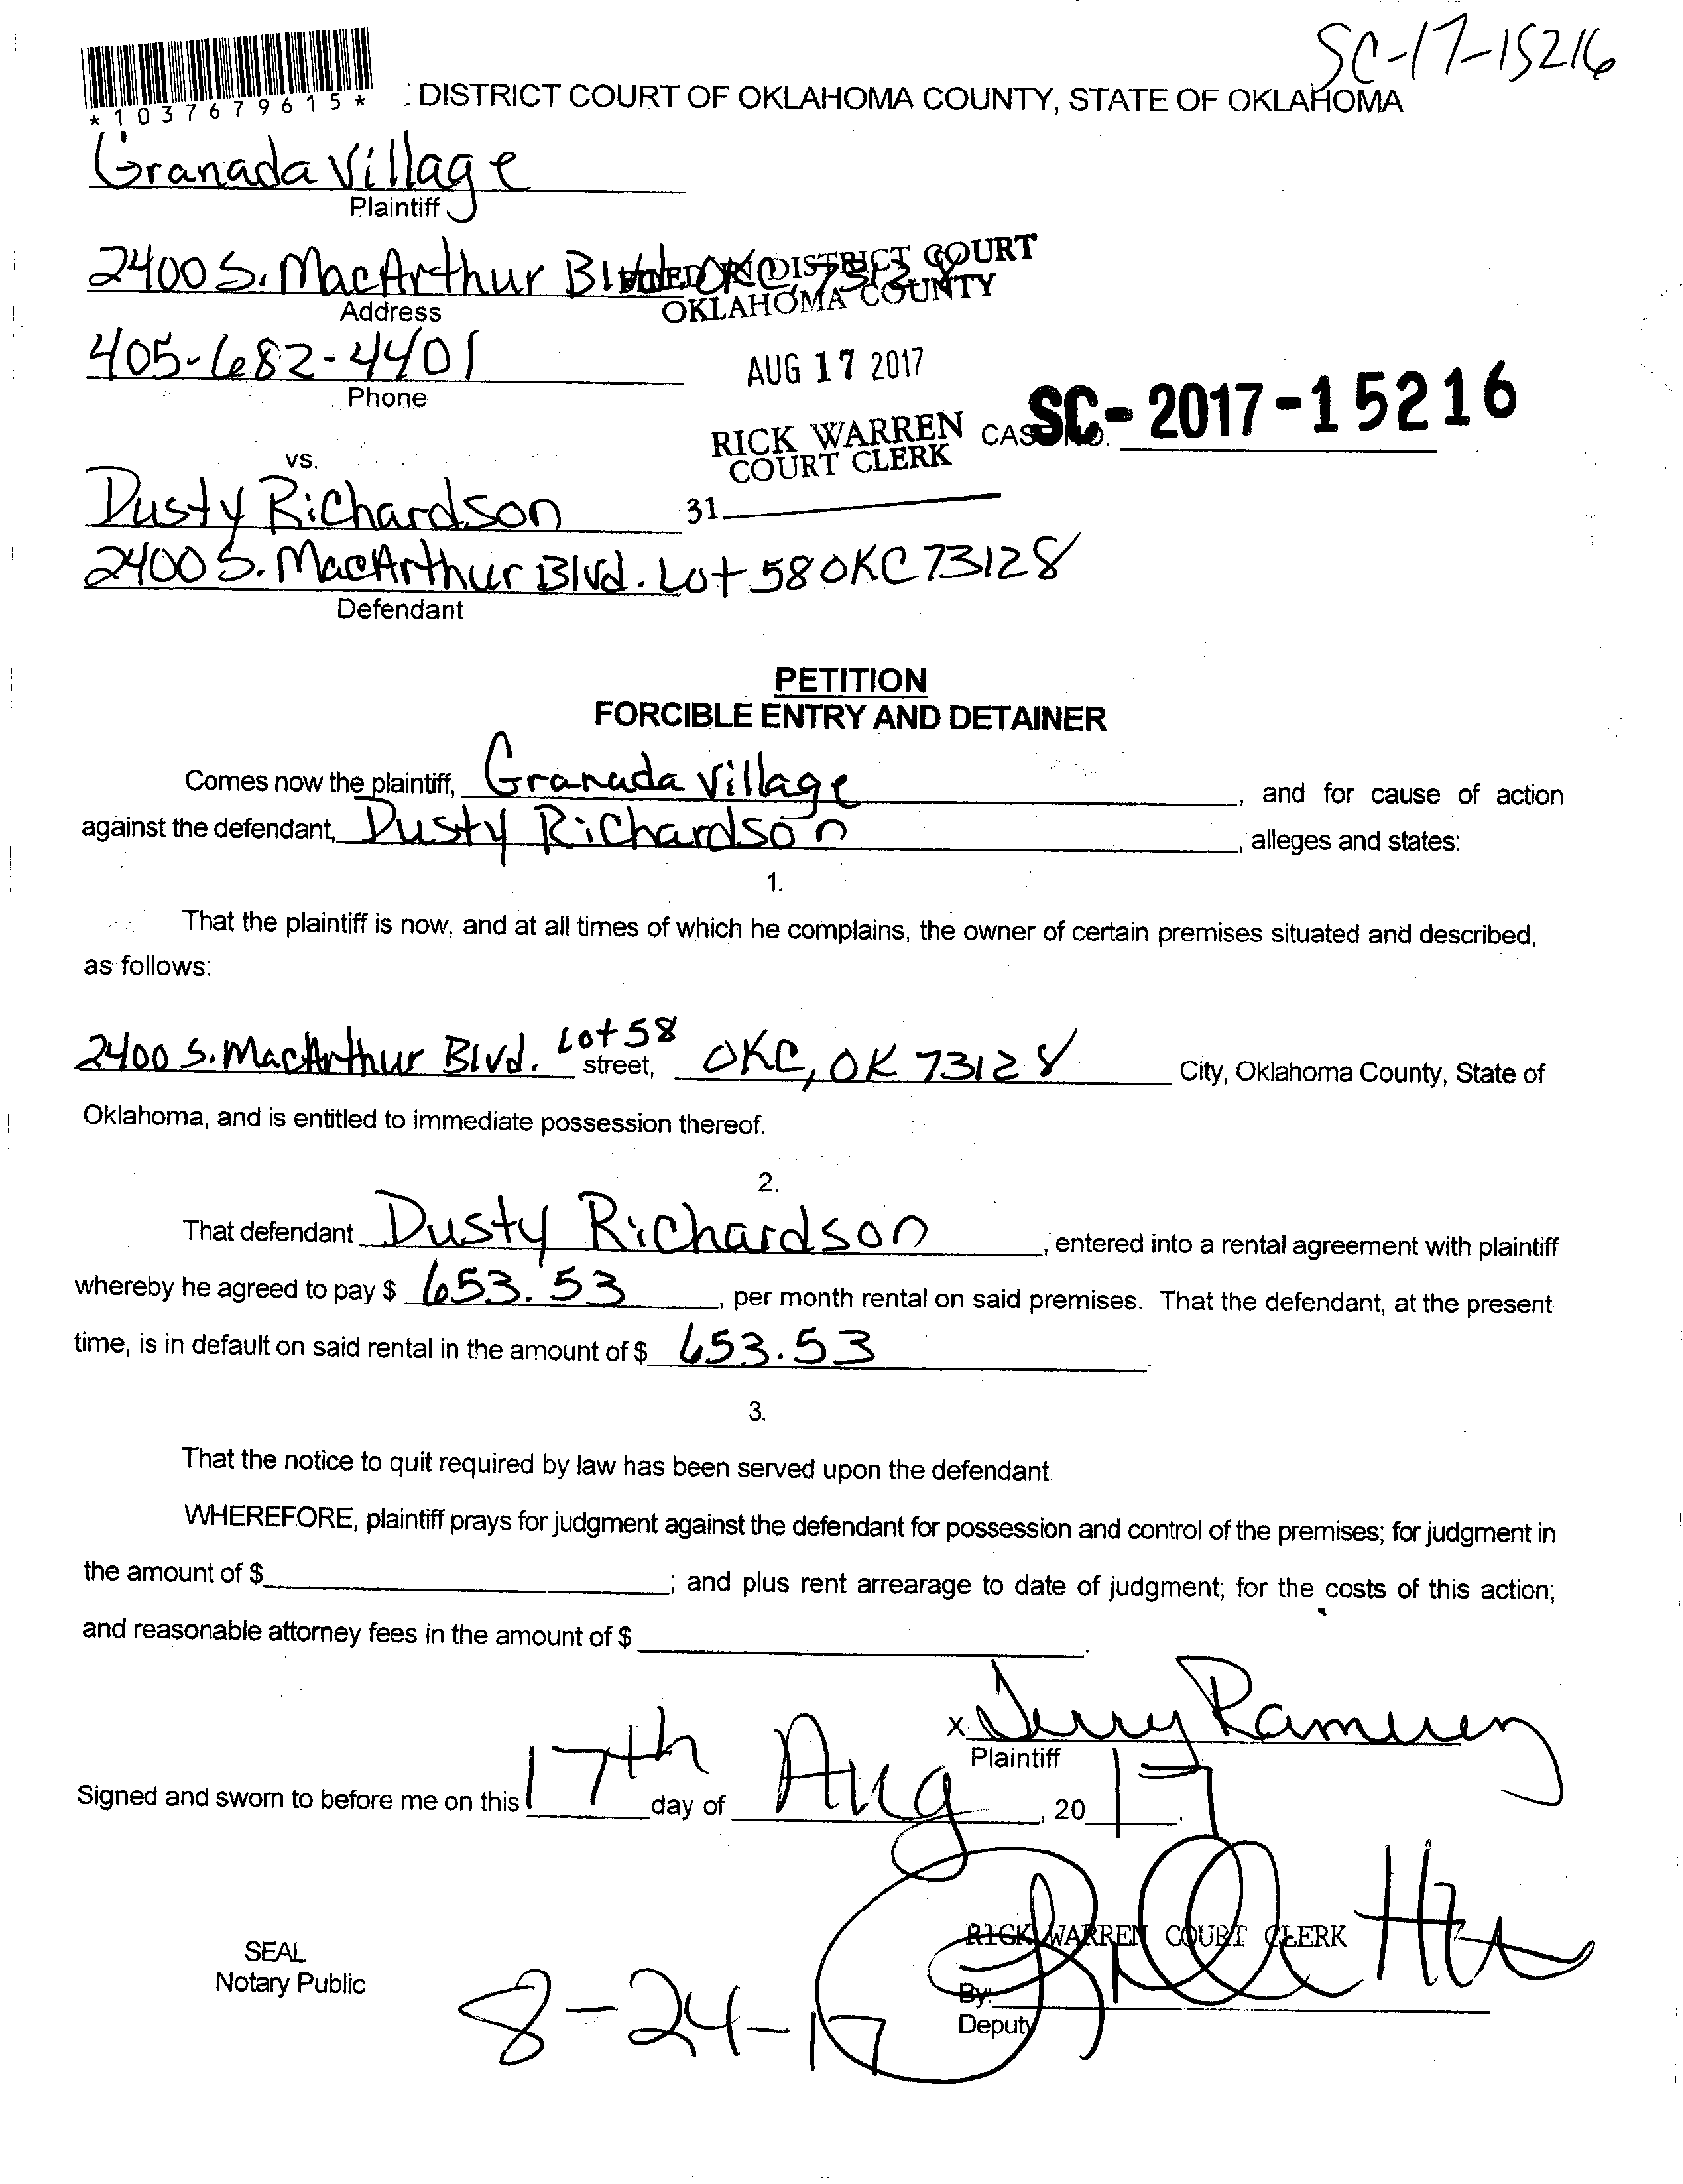 SC-17-15216
*1037679615*
DISTRICT COURT OF OKLAHOMA COUNTY, STATE OF OKLAHOMA
Granada Village
Plaintiff
2400 S. MacArthur Blvd. OKC, 73128
FILED IN DISTRICT COURT
OKLAHOMA COUNTY
Address
405-682-4401
Phone
AUG 17 2017
RICK WARREN
COURT CLERK
CASE NO. SC-2017-15216
vs.
31
Dusty Richardson
2400 S. MacArthur Blvd. Lot 58 OKC 73128
Defendant
PETITION
FORCIBLE ENTRY AND DETAINER
Comes now the plaintiff, Granada Village, and for cause of action
against the defendant, Dusty Richardson, alleges and states:
1.
That the plaintiff is now, and at all times of which he complains, the owner of certain premises situated and described,
as follows:
2400 S. MacArthur Blvd. Lot 58 street, OKC, OK 73128 City, Oklahoma County, State of
Oklahoma, and is entitled to immediate possession thereof.
2.
That defendant Dusty Richardson, entered into a rental agreement with plaintiff
whereby he agreed to pay $ 653.53, per month rental on said premises. That the defendant, at the present
time, is in default on said rental in the amount of $ 653.53.
3.
That the notice to quit required by law has been served upon the defendant.
WHEREFORE, plaintiff prays for judgment against the defendant for possession and control of the premises; for judgment in
the amount of $ ; and plus rent arrearage to date of judgment; for the costs of this action;
and reasonable attorney fees in the amount of $ .
x Jerry Ramirez
Plaintiff
Signed and sworn to before me on this 17th day of Aug, 20 17.
RICK WARREN COURT CLERK
SEAL
Notary Public
By:
Deputy
8-24-17